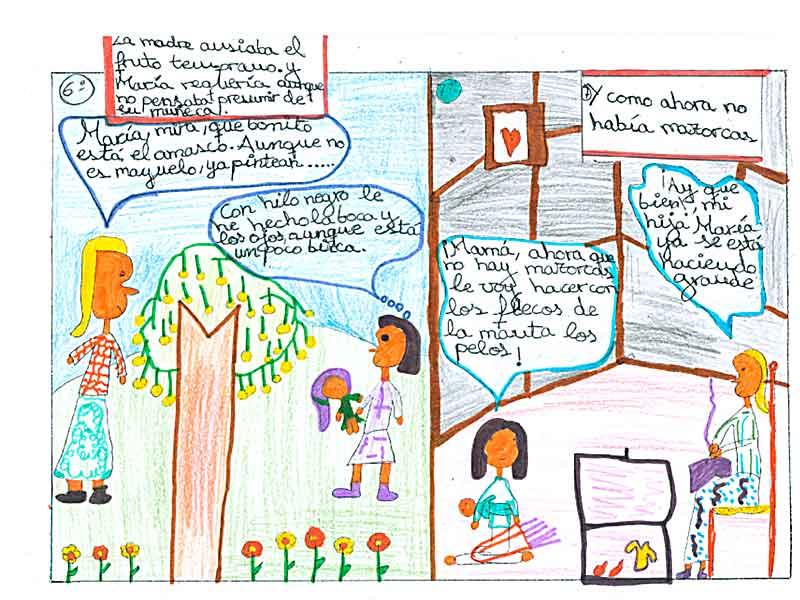 La madre ansiaba el
fruto temprano. y
María requería aunque
no pensaba presumir de
su muñeca.
6º
María, mira, que bonito
está el amasco. Aunque no
es mayuelo, ya pintean......
Con hilo negro le
he hecho la boca y
los ojos, aunque está
un poco bizca.
Y como ahora no
había mazorcas
¡Mamá, ahora que
no hay mazorcas
le voy hacer con
los flecos de
la manta los
pelos!
¡Ay que
bien, mi
hija María
ya se está
haciendo
grande